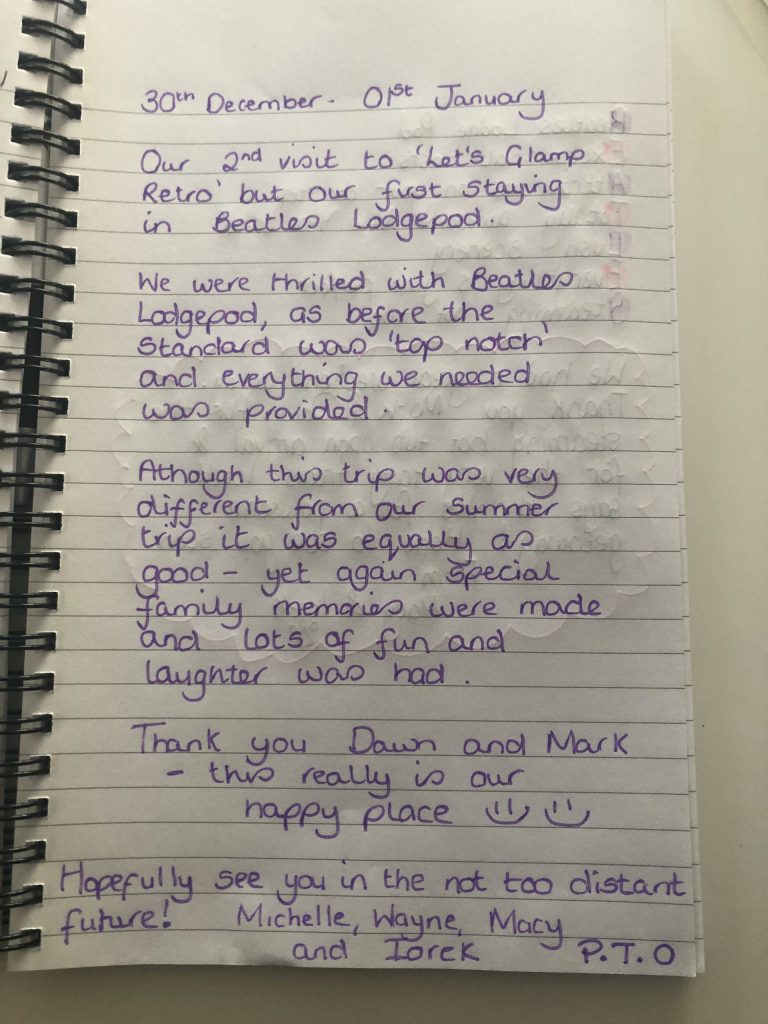 30th December - 01st January
Our 2nd visit to 'Let's Glamp
Retro' but our first staying
in Beatles Lodgepod.
We were thrilled with Beatles
Lodgepod, as before the
standard was 'top notch'
and everything we needed
was provided.
Athough this trip was very
different from our summer
trip it was equally as
good - yet again special
family memories were made
and lots of fun and
laughter was had.
Thank you Dawn and Mark
- this really is our
happy place
Hopefully see you in the not too distant
future! Michelle, Wayne, Macy
and Iorek P.T.O